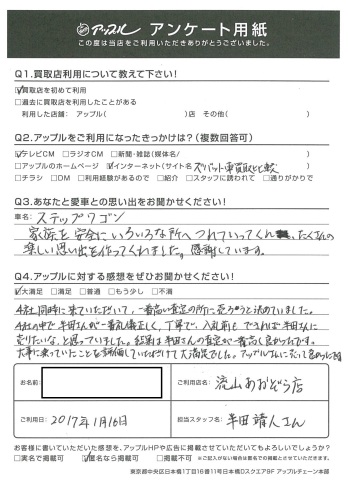 アップル アンケート用紙
この度は当店をご利用いただきありがとうございました。
Q1.買取店利用について教えて下さい!
☑買取店を初めて利用
□過去に買取店を利用したことがある
利用した店舗: アップル( )店 その他( )
Q2.アップルをご利用になったきっかけは?(複数回答可)
☑テレビCM □ラジオCM □新聞・雑誌(媒体名/ )
□アップルのホームページ ☑インターネット(サイト名 ズバット車買取比較
□チラシ □DM □利用経験があるので □紹介 □スタッフに誘われて □通りがかりで
Q3.あなたと愛車との思い出をお聞かせください!
車名: ステップワゴン
家族を安全にいろいろな所へつれていってくれ、たくさんの
楽しい思い出を作ってくれました。感謝しています。
Q4.アップルに対する感想をぜひお聞かせください!
☑大満足 □満足 □普通 □もう少し □不満
4社同時に来ていただいて、一番高い査定の所に売ろうと決めていました。
4社の中で半田さんが一番礼儀正しく、丁寧で、入札前も できれば半田さんに
売りたいな、と思っていました。結果は半田さんの査定が一番高く良かったです。
大事に乗っていたことを評価していただけて大満足でした。アップルさんに売って良かったです
お名前:
ご利用店名: 流山あおぞら店
ご利用日: 2017年1月16日
担当スタッフ名: 半田靖人さん
お客様に書いていただいた感想を、アップルHPや広告に掲載させていただいてもよろしいでしょうか?
□実名で掲載可 ☑匿名なら掲載可 □掲載不可 ※ご記入がない場合は匿名での掲載とさせていただきます。
東京都中央区日本橋1丁目16番11号日本橋Dスクエア9F アップルチェーン本部